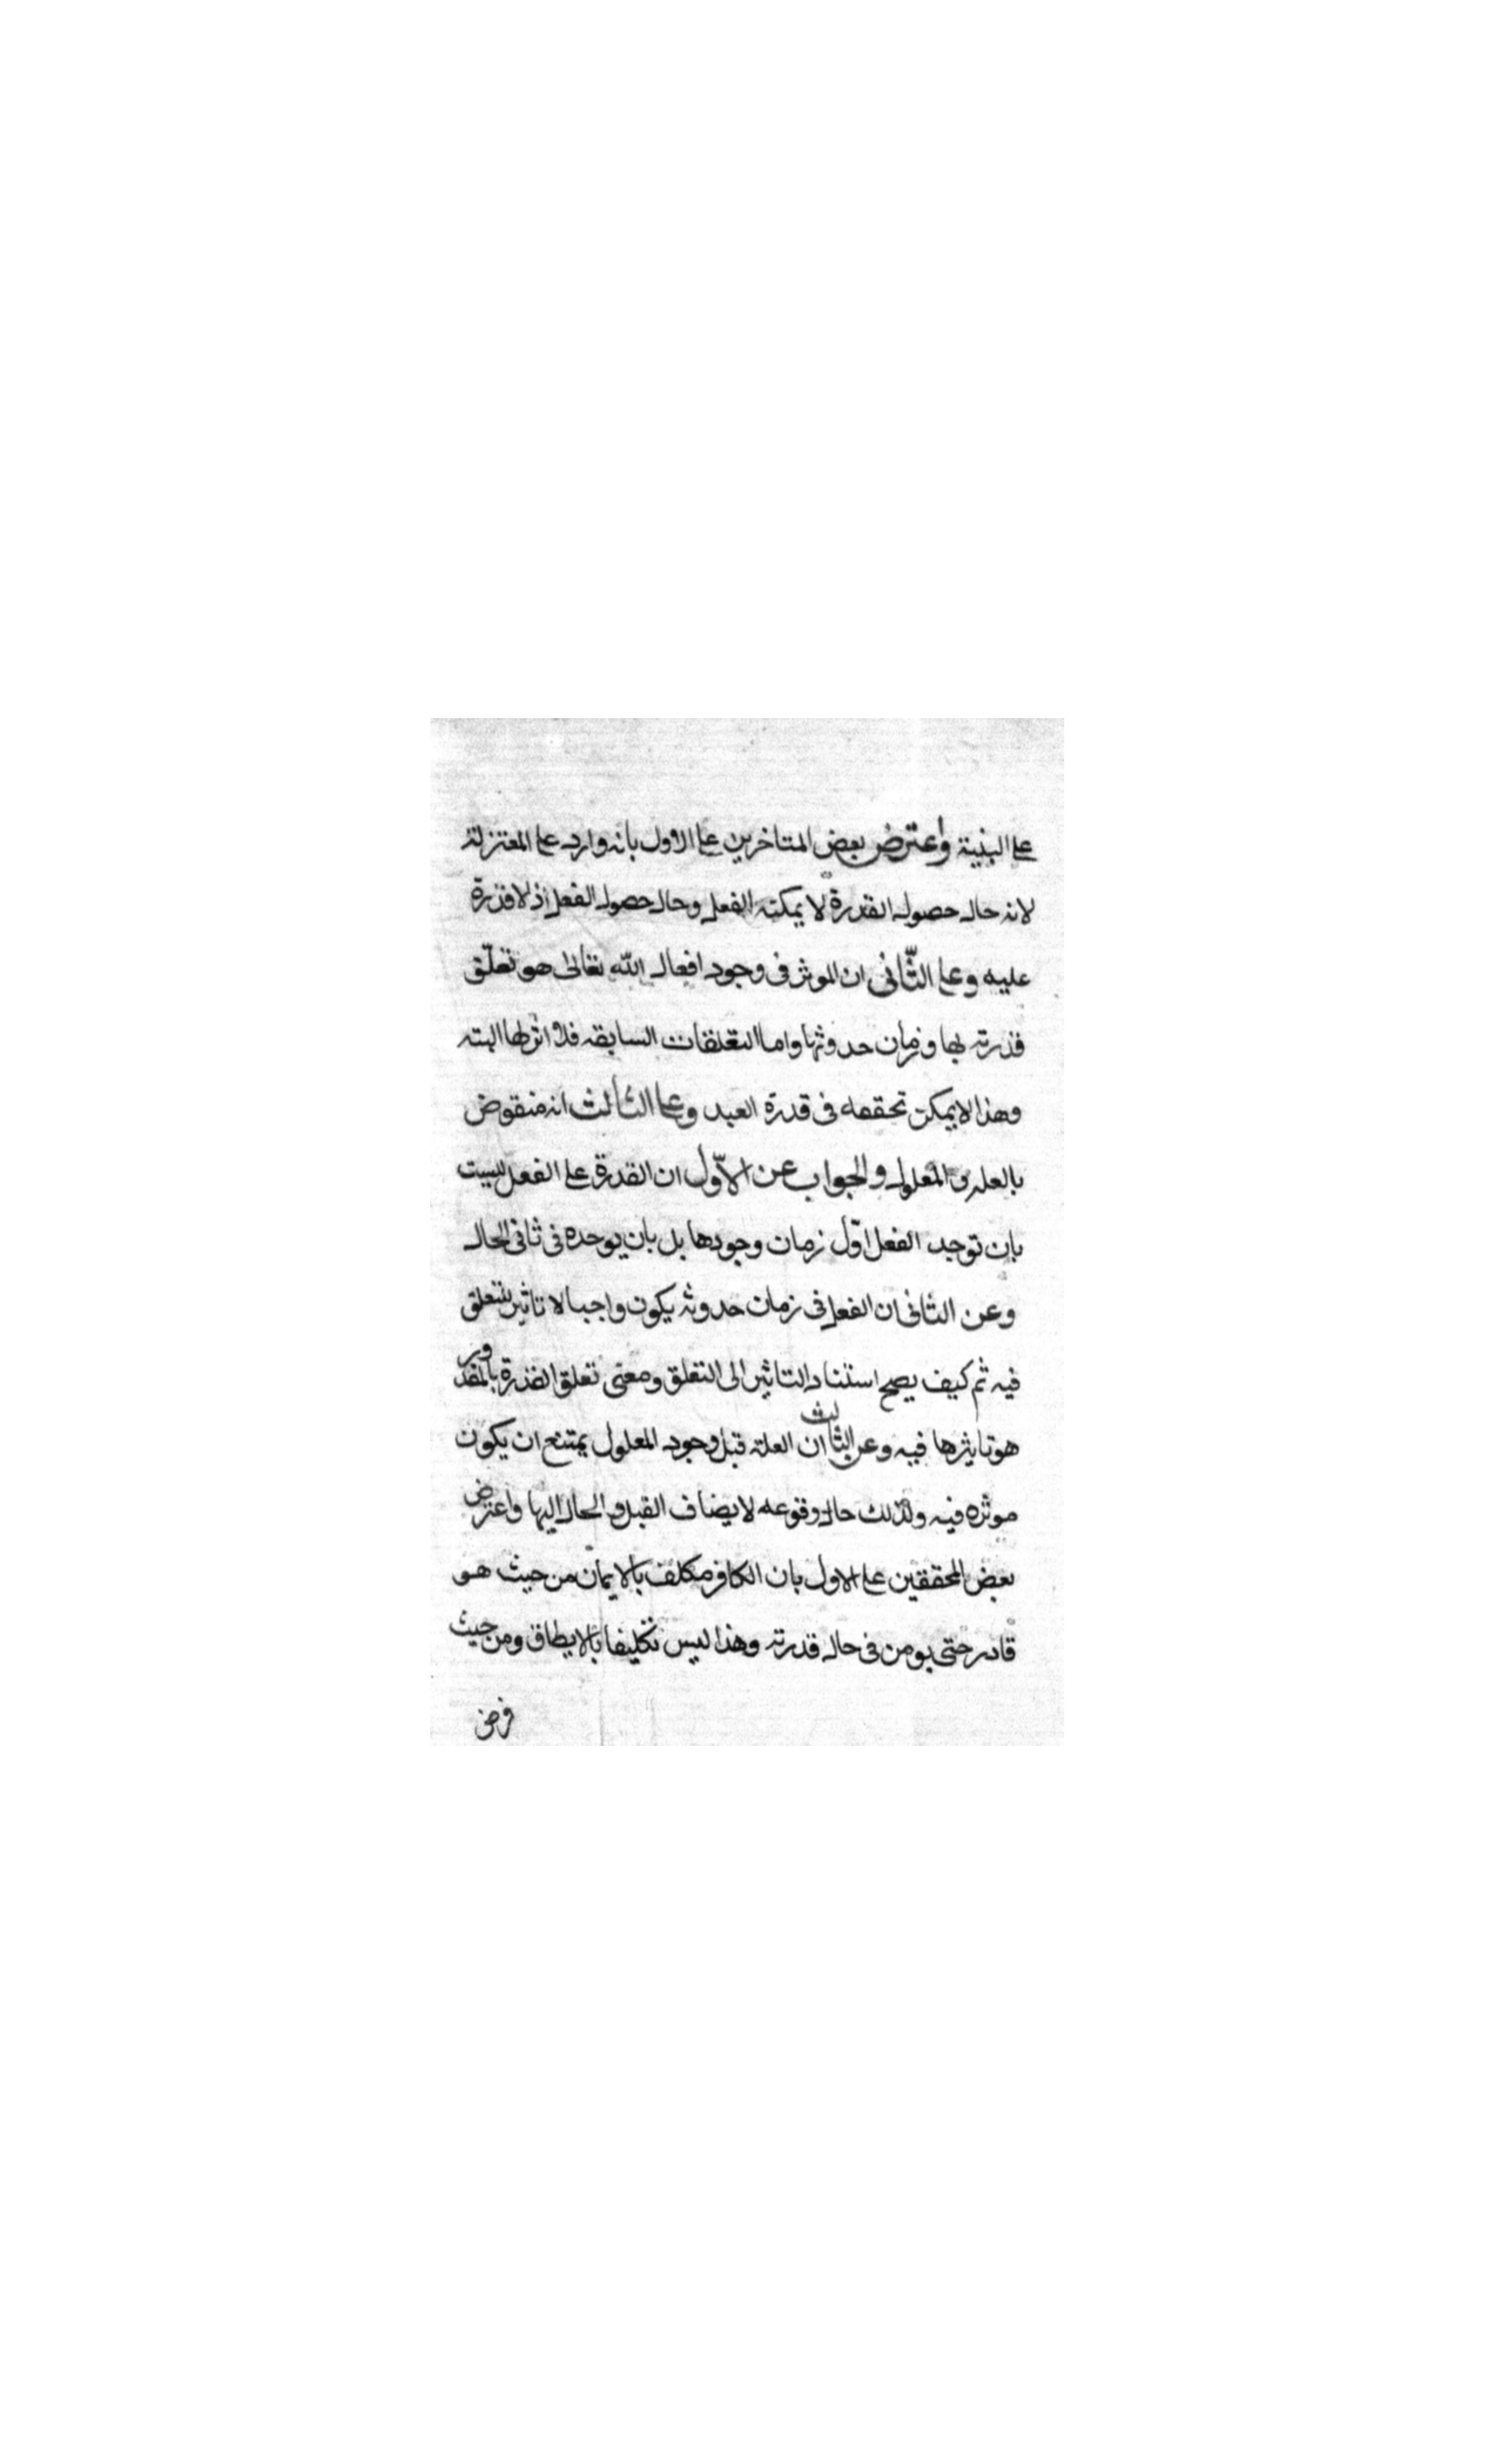 على البنية واعترض بعض المتاخرين على الاول بانه وارد على المعتزلة
لانه حال حصول القدرة لا يمكنه الفعل وحال حصول الفعل اذ لا قدرة
عليه وعلى الثّانى ان الموثر فى وجود افعال الله تعالى هو تعلّق
قدرته بها وزمان حدوثها واما التعلقات السابقه فلا اثر لها البته
وهذا لا يمكن تحققه فى قدرة العبد وعلى الثالث انه منقوض
بالعله والمعلول والجواب عن الاوّل ان القدرة على الفعل ليست
بان توجد الفعل اوّل زمان وجودها بل بان يوجده فى ثانى الحال
وعن الثانى ان الفعل فى زمان حدوثه يكون واجبا لا تاثير للتعلق
فيه ثم كيف يصح استناد التاثير الى التعلق ومعنى تعلق القدرة بالمقدور
هو تاثيرها فيه وعن الثالث ان العلة قبل وجود المعلول يمتنع ان يكون
موثره فيه ولذلك حال وقوعه لا يضاف القبل والحال اليها واعترض
بعض المحققين على الاول بان الكافر مكلف بالايمان من حيث هو
قادر حتى يومن فى حال قدرته وهذا ليس تكليفا بما لا يطاق ومن حيث
فرض